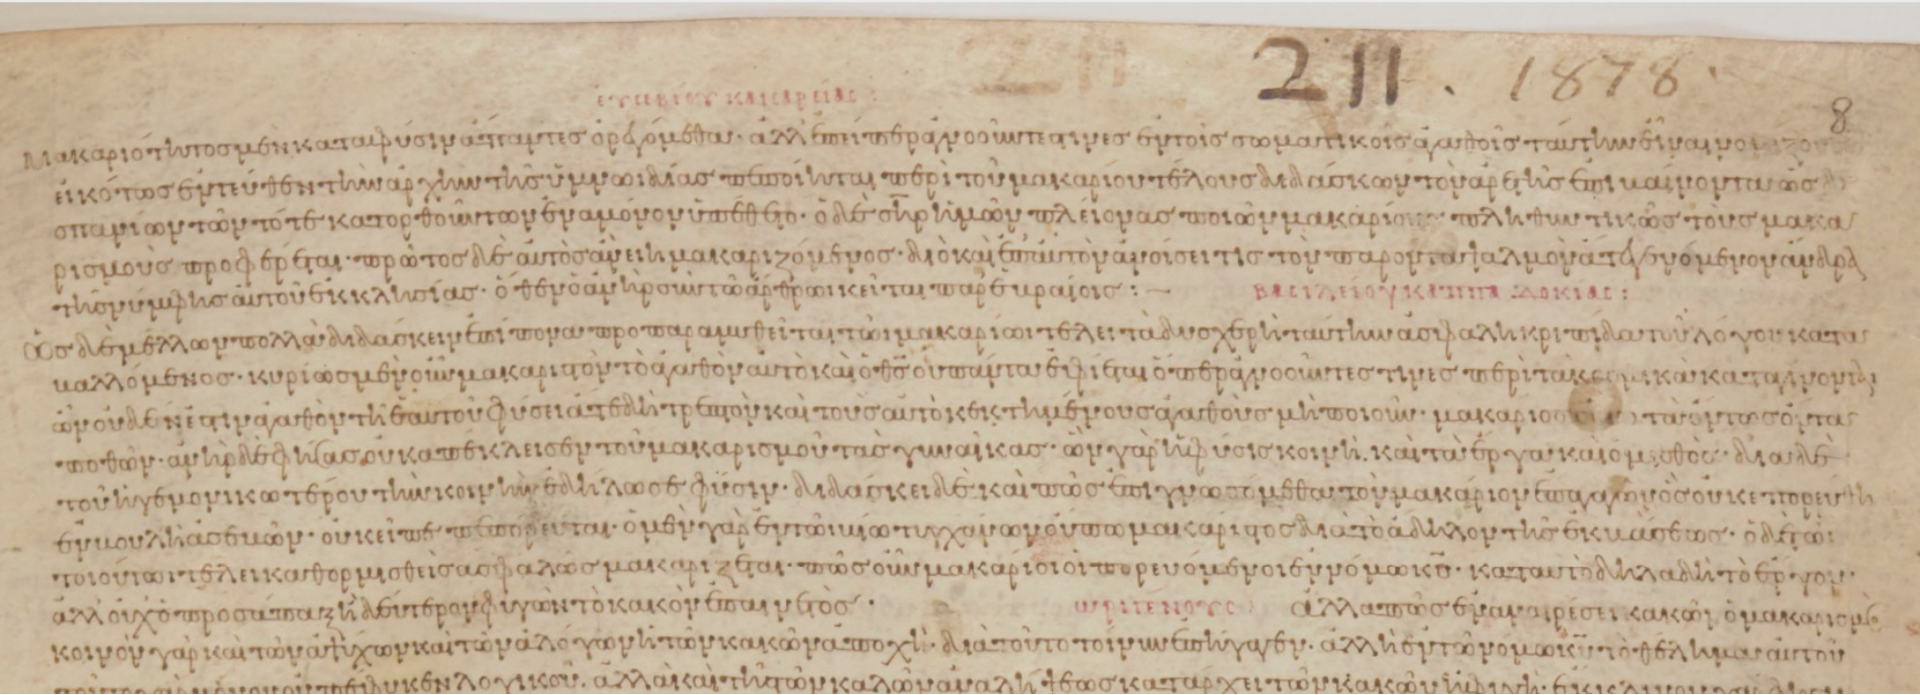 211. 1878.
εὐσεβίου καισαρείας:
8
Μακαριότητος μὲν κατὰ φύσιν ἅπαντες ὀρεγόμεθα· ἀλλ' ἐπείπερ ἀγνοοῦντες τινες ἐν τοῖς σωματικοῖς ἀγαθοῖς ταύτην εἶναι
εἰκότως ἐντεῦθεν τὴν ἀρχὴν τῆς ὑμνωιδίας πεποίηται περὶ τοῦ μακαρίου τέλους διδάσκων τὸν ἀρετῆς ἐπιβαίνοντα ὡς
σπανίων τῶν τότε κατορθούντων ἕνα μόνον ὑπέθετο· ὁ δὲ σηρ ἡμῶν πλείονας ποιῶν πληθυντικῶς τοὺς μακα
ρισμοὺς προφέρεται· πρῶτος δὲ αὐτὸς ἂν εἴη μακαριζόμενος· διὸ καὶ ἐπ' αὐτὸν ἀνοίσει τις τὸν παρόντα ψαλμὸν ἅτε γενόμενον ἄνδρα
τῆς νύμφης αὐτοῦ ἐκκλησίας· ὅθεν ὁ ἀνὴρ σὺν τῶ ἄρθρωι κεῖται παρ' ἑβραίοις:
βασιλείου καππαδοκίας:
Ὡς δὲ μέλλων πολλὰ διδάσκειν ἐπίπονα προπαραμυθεῖται τῶι μακαρίωι τέλει τὰ δυσχερῆ ταύτην ἀσφαλῆ κρηπίδα τοῦ λόγου κατα
βαλλόμενος· κυρίως μὲν οὖν μακαριστὸν τὸ ἀγαθὸν αὐτὸ καὶ ὁ θς οὗ πάντα ἐφίεται ὅπερ ἀγνοοῦντες τινες περὶ τὰ
ὧν οὐδέν ἐστιν ἀγαθὸν τῆ ἑαυτοῦ φύσει ἅτε δὴ τρεπτὸν καὶ τοὺς αὐτὸ κεκτημένους ἀγαθοὺς μὴ ποιοῦν· τὰ ὄντως ὄντα
ποθῶν· ἀνὴρ δὲ φήσας οὐκ ἀπέκλεισεν τοῦ μακαρισμοῦ τὰς γυναῖκας· ὧν γὰρ ἡ φύσις κοινὴ, καὶ τὰ ἔργα καὶ ὁ μισθός· διὰ δὲ
τοῦ ἡγεμονικωτέρου τὴν κοινὴν ἐδήλωσε φύσιν· διδάσκει δὲ καὶ πῶς ἐπιγνωσόμεθα τὸν μακάριον ἐπαγαγὼν ὃς οὐκ ἐπορεύθη
ἐν βουλῆ ἀσεβῶν· οὐκ εἶπε πεπόρευται· ὁ μὲν γὰρ ἐν τῶι βίω τυγχάνων οὔπω μακαριστὸς διὰ τὸ ἄδηλον τῆς ἐκβάσεως· ὁ δὲ τῶι
τοιούτωι τέλει καθορμισθεὶς ἀσφαλῶς μακαρίζεται· πῶς οὖν μακάριοι οἱ πορευόμενοι ἐν νόμω κυ· κατ' αυτὸ δηλαδὴ τὸ ἔργον·
ἀλλ' οὐχ ὁ πρὸς ἅπαξ ἢ δεύτερον φυγὼν τὸ κακὸν ἐπαινετὸς·
ὠριγένους
Ἀλλὰ πῶς ἐν ἀναιρέσει κακῶν ὁ μακαρισμὸς
κοινὸν γὰρ καὶ τῶν ἀψύχων καὶ τῶν ἀλόγων ἡ τῶν κακῶν ἀποχὴ· διὰ τοῦτο τοίνυν ἐπήγαγεν· ἀλλ' ἢ ἐν τῶ νόμω κυ τὸ θέλημα αὐτοῦ
λογικοῦ. ἀλλὰ καὶ τῆς τῶν καλῶν ἀναλήψεως κατάρχει τῶν κακῶν ἡ φυγὴ·